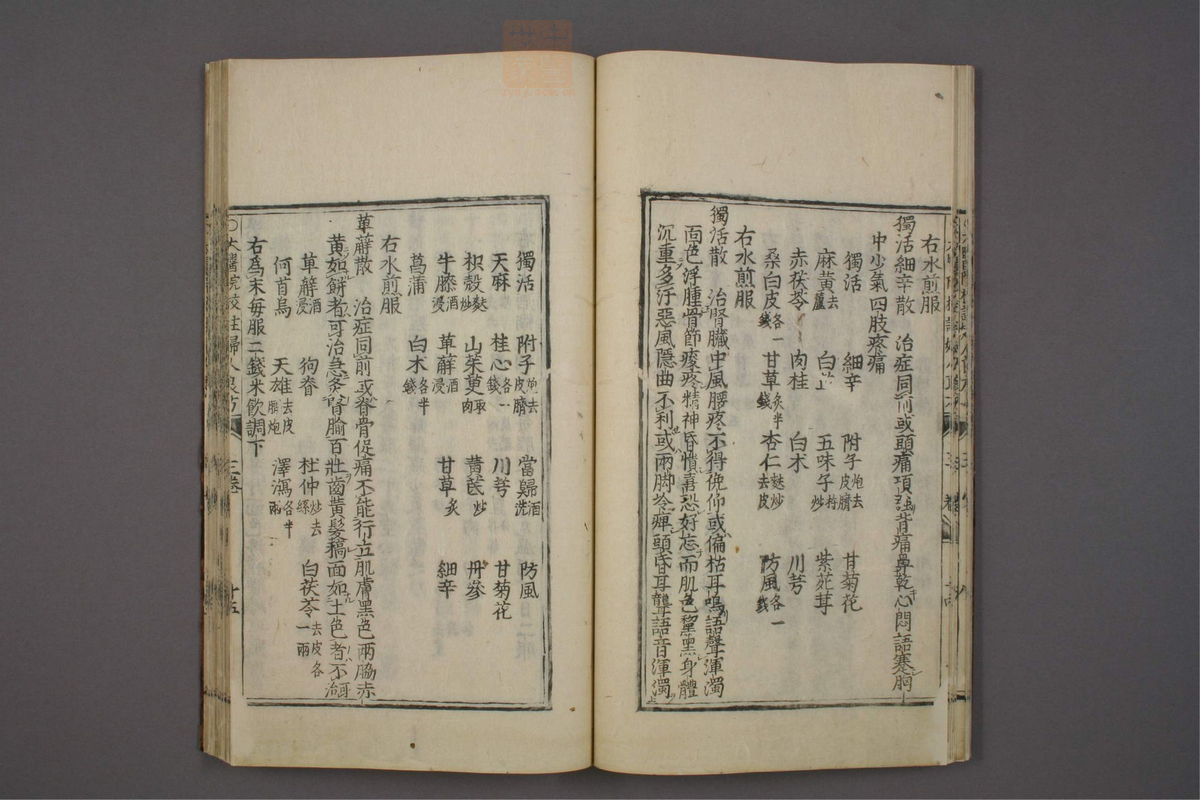 右水煎服
獨活細辛散 治症同前或頭痛項強背痛鼻乾心悶語蹇胸
中少氣四肢疼痛
獨活 細辛 附子炮去皮臍 甘菊花
麻黄去蘆 白 五味子杵炒 紫苑茸
赤茯苓 肉桂 白朮 川芎
桑白皮各一錢 甘草炙半錢 杏仁麩炒去皮 防風各一錢
右水煎服
獨活散 治腎臟中風腰疼不得俛仰或偏枯耳鳴語聲渾濁
面色浮腫骨節痠疼精神昏憒喜恐好忘而肌色黧黑身體
沉重多汗惡風隱曲不利或兩脚冷痺頭昏耳聾語音渾濁
獨活 附子炮去皮臍 當歸酒洗 防風
天麻 桂心各一錢 川芎 甘菊花
枳殼麩炒 山茱萸取肉 黄茋炒 丹參
牛膝酒浸 萆薢酒浸 甘草炙 細辛
菖蒲 白朮各半錢
右水煎服
萆薢散 治症同前或脊骨促痛不能行立肌膚黑色兩脇赤
黄如餅者可治急灸腎腧百壯齒黄髮稿面如土色者不治
萆薢酒浸 狗脊 杜仲炒去絲 白茯苓去皮各一兩
何首烏 天雄去皮臍炮 澤瀉各半兩
右為末每服二錢米飲調下
○太醫院校註婦人良方 三卷 廿五